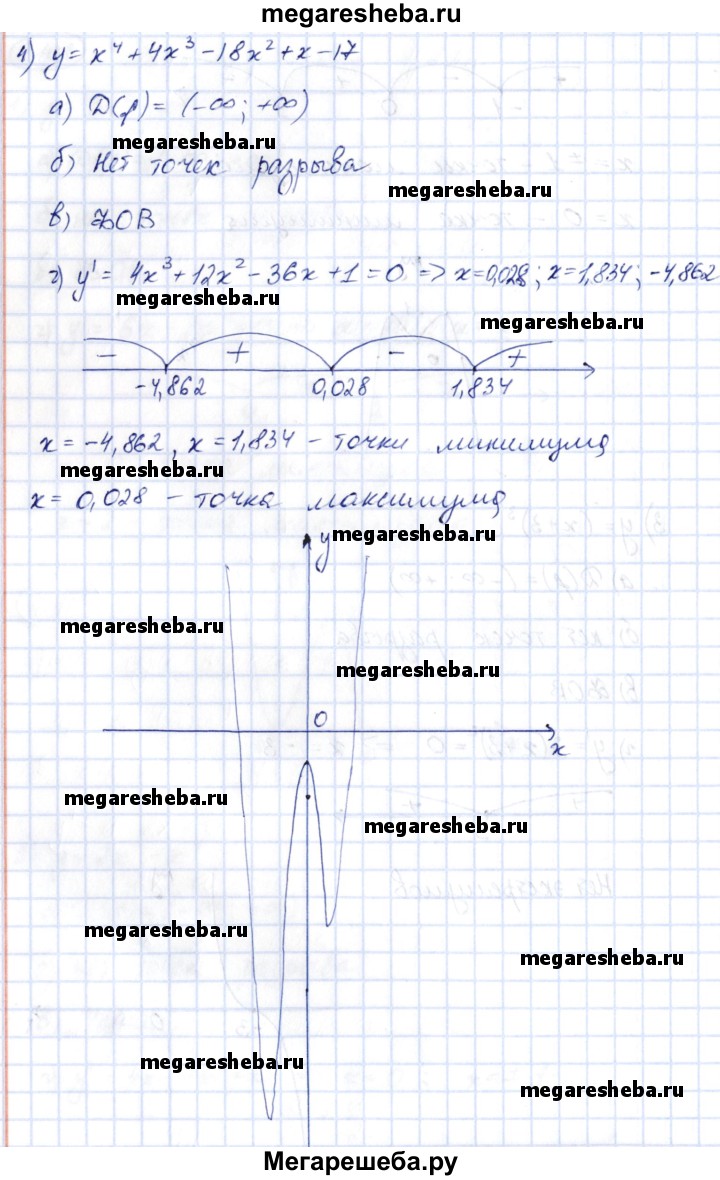 megaresheba.ru
4) y = x⁴ + 4x³ - 18x² + x - 17
а) D(f) = (-∞; +∞)
megaresheba.ru
б) Нет точек разрыва
megaresheba.ru
в) ЗОВ
г) y' = 4x³ + 12x² - 36x + 1 = 0 => x = 0,028; x = 1,834; -4,862
megaresheba.ru
megaresheba.ru
- + - +
-4,862 0,028 1,834
x = -4,862, x = 1,834 - точки минимума
megaresheba.ru
x = 0,028 - точка максимума
megaresheba.ru
y
megaresheba.ru
megaresheba.ru
0
x
megaresheba.ru
megaresheba.ru
megaresheba.ru
megaresheba.ru
megaresheba.ru
megaresheba.ru
Мегарешеба.ру